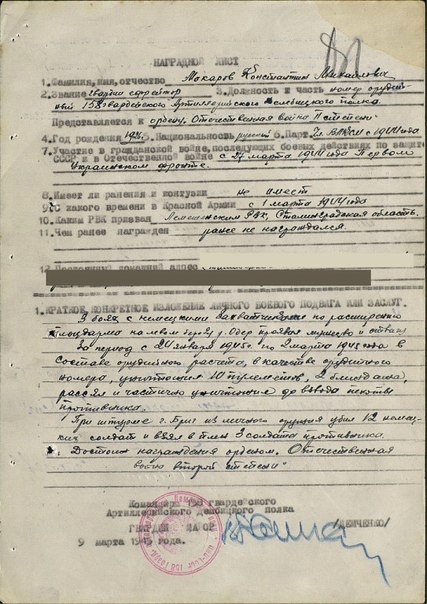 НАГРАДНОЙ ЛИСТ
1. Фамилия, имя, отчество Макаров Константин Михайлович
2. Звание гвардии ефрейтор 3. Должность и часть номер орудий-
ный 158 гвардейского Артиллерийского Дембицкого полка
Представляется к ордену Отечественная война II степени
4. Год рождения 1926 5. Национальность русский 6. Парт. Чл. ВЛКСМ с 1944 года
7. Участие в гражданской войне, последующих боевых действиях по защите
СССР и в Отечественной войне с 24 марта 1944 года Первом
Украинском фронте.
8. Имеет ли ранения и контузии не имеет
9. С какого времени в Красной Армии с 1 марта 1944 года
10. Каким РВК призван РВК, Сталинградская область.
11. Чем ранее награжден ранее не награждался.
12. Постоянный домашний адрес
1. КРАТКОЕ, КОНКРЕТНОЕ ИЗЛОЖЕНИЕ ЛИЧНОГО БОЕВОГО ПОДВИГА ИЛИ ЗАСЛУГ.
В боях с немецкими захватчиками по расширению
плацдарма на левом берегу р. Одер проявил мужество и отвагу
За период с 24 января 1945 г. по 2 марта 1945 года в
составе орудийного расчета, в качестве орудийного
номера, уничтожил 10 пулеметов, 2 блиндажа,
рассеял и частично уничтожил до взвода пехоты
противника.
При штурме г. Бриг из личного оружия убил 12 немец-
ких солдат и взял в плен 3 солдата противника.
Достоин награждения орденом "Отечественная
война второй степени"
Командир 158 гвардейского
Артиллерийского Дембицкого полка
ГВАРДИИ МАЙОР /ДЕМЧЕНКО/
9 марта 1945 года.